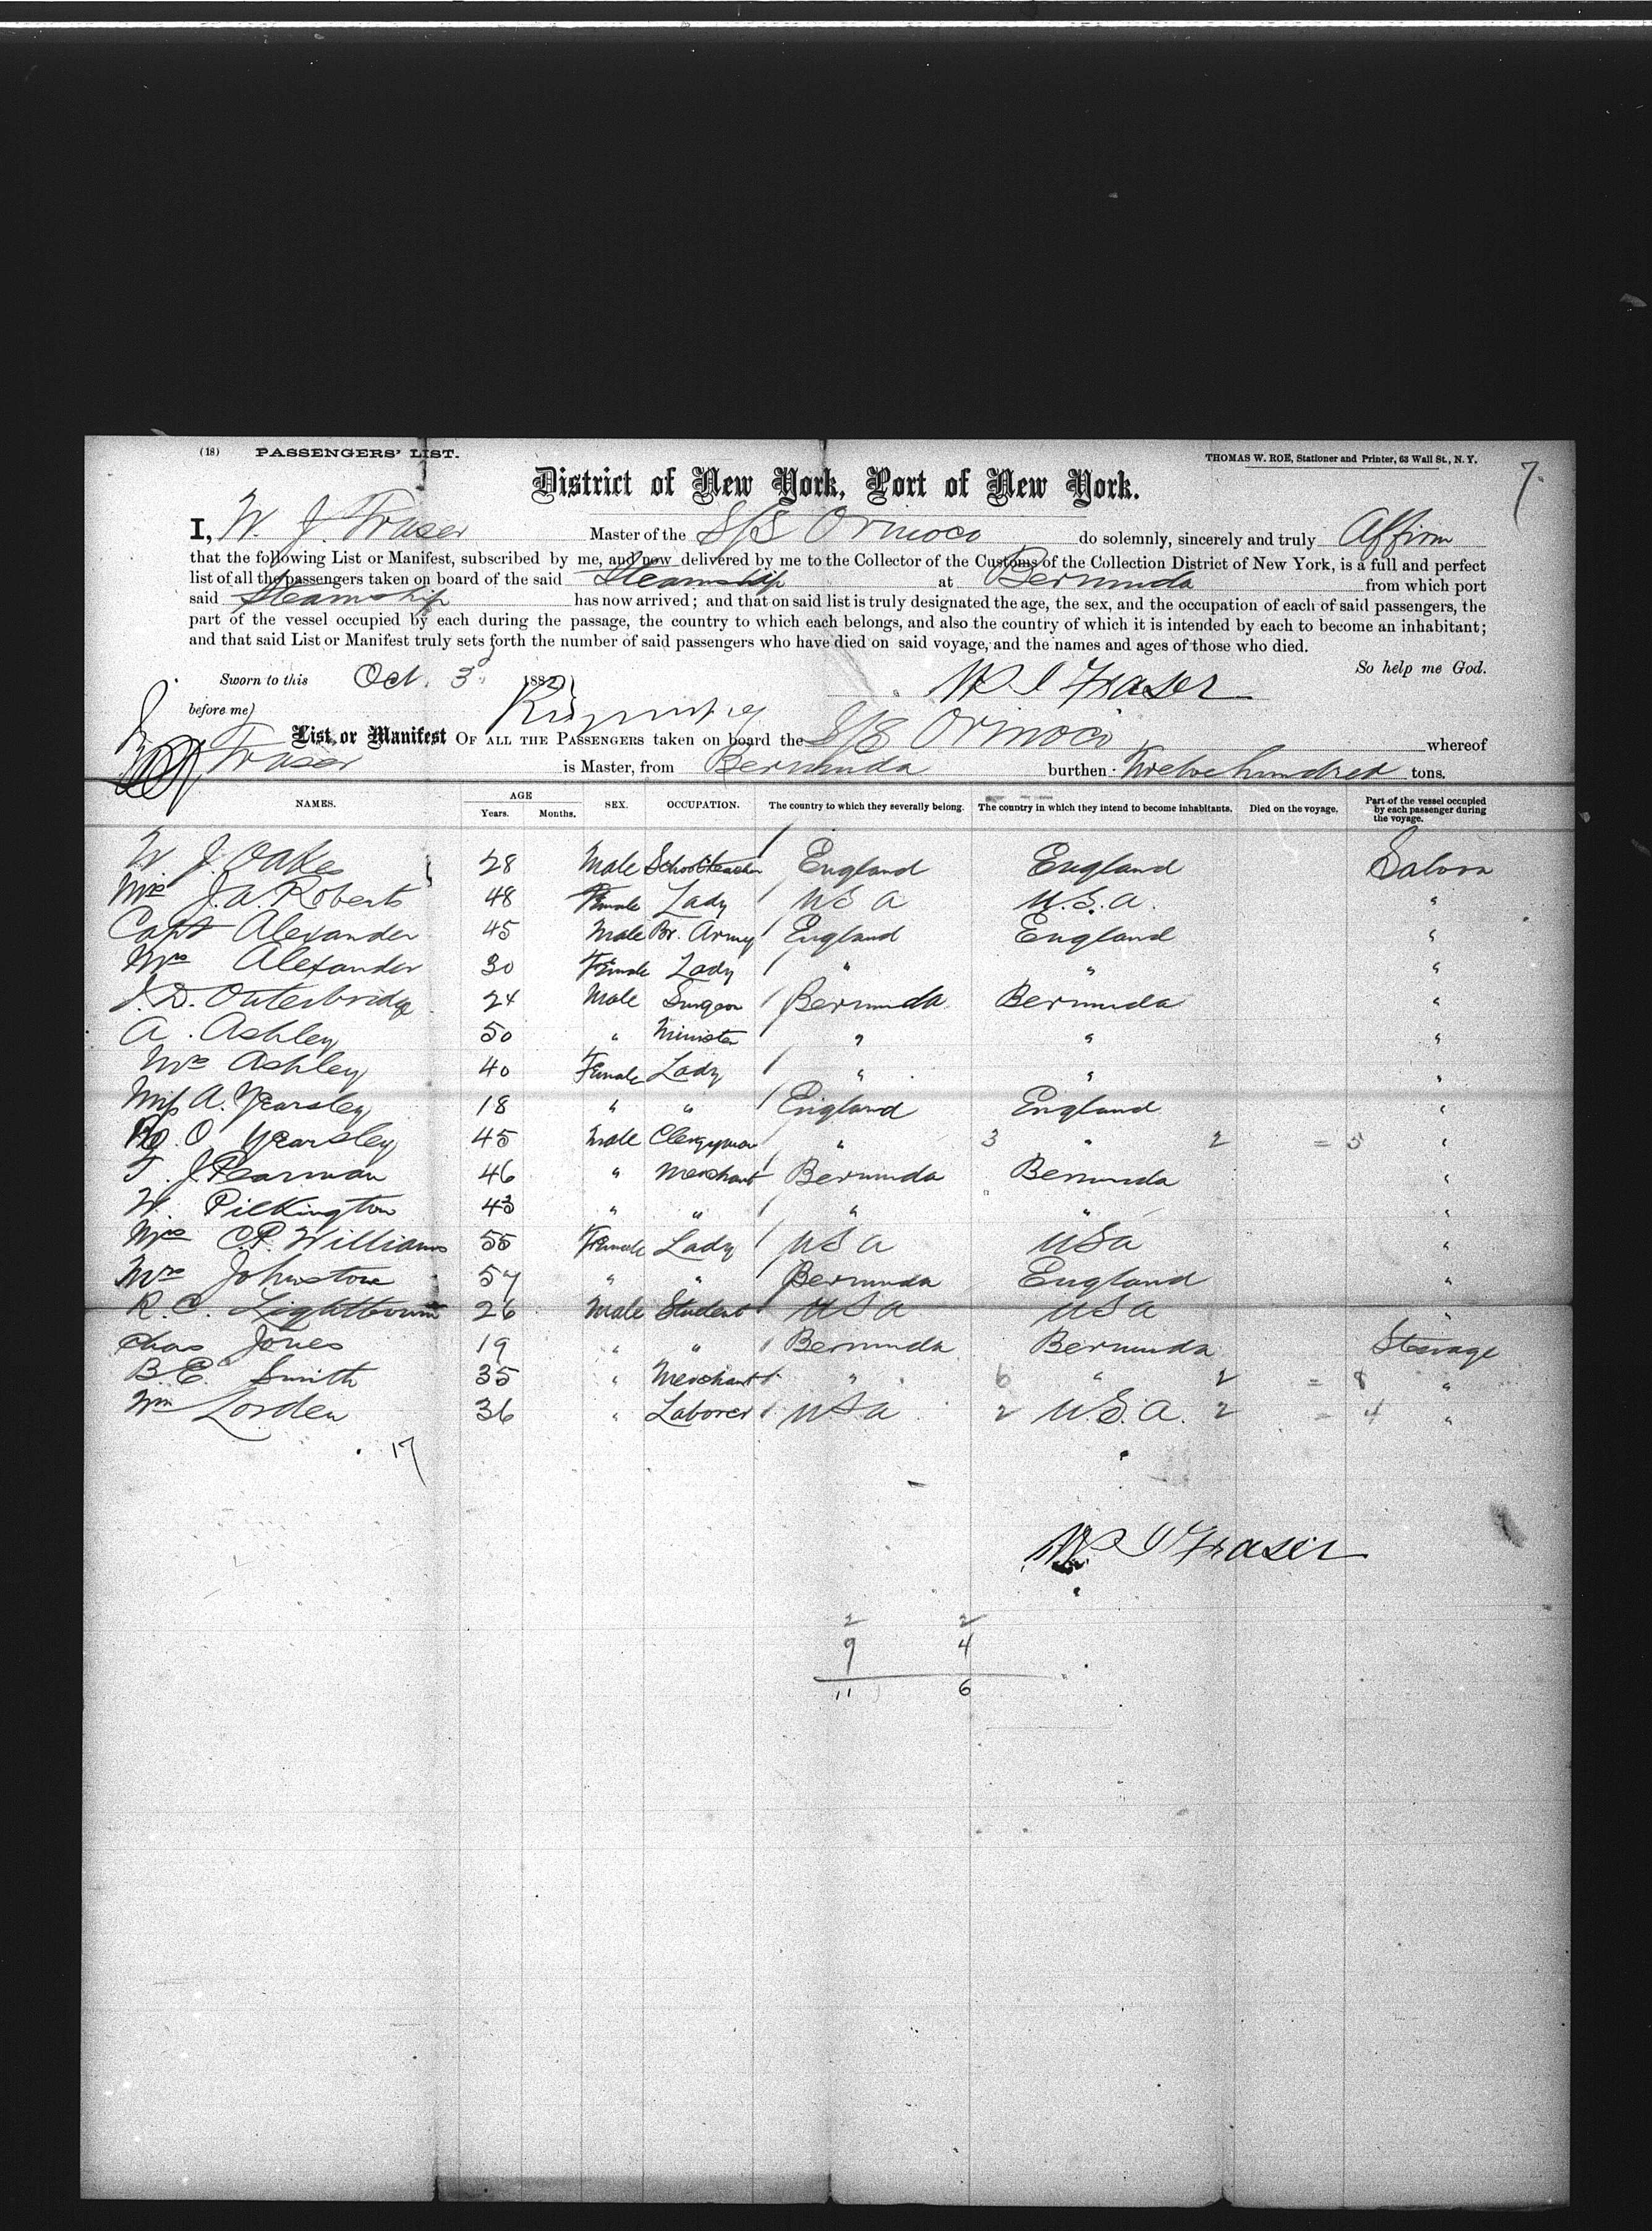 (18) PASSENGERS' LIST. THOMAS W. ROE, Stationer and Printer, 63 Wall St., N. Y.
7.
District of New York, Port of New York.
I, W. J. Fraser Master of the S/S Orinoco do solemnly, sincerely and truly Affirm
that the following List or Manifest, subscribed by me, and now delivered by me to the Collector of the Customs of the Collection District of New York, is a full and perfect
list of all the passengers taken on board of the said Steamship at Bermuda from which port
said Steamship has now arrived; and that on said list is truly designated the age, the sex, and the occupation of each of said passengers, the
part of the vessel occupied by each during the passage, the country to which each belongs, and also the country of which it is intended by each to become an inhabitant;
and that said List or Manifest truly sets forth the number of said passengers who have died on said voyage, and the names and ages of those who died.
So help me God.
Sworn to this Oct. 3 1882 W J Fraser
before me
List, or Manifest OF ALL THE PASSENGERS taken on board the S/S Orinoco whereof
Fraser is Master, from Bermuda burthen Twelve hundred tons.
NAMES. AGE Years. Months. SEX. OCCUPATION. The country to which they severally belong. The country in which they intend to become inhabitants. Died on the voyage. Part of the vessel occupied by each passenger during the voyage.
W J. Oakes 28 Male Schoolteacher England England Saloon
Mrs J. A. Roberts 48 Female Lady U S A U. S. A. "
Capt Alexander 45 Male Br. Army England England "
Mrs Alexander 30 Female Lady " " "
J. D. Outerbridge 24 Male Surgeon Bermuda Bermuda "
A. Ashley 50 " Minister " " "
Mrs Ashley 40 Female Lady " " "
Miss A. Yearsley 18 " " England England "
O Yearsley 45 Male Clergyman " 3 " 2 = 5 "
T. J. Pearman 46 " Merchant Bermuda Bermuda "
W. Pilkington 43 " " " " "
Mrs C. P. Williams 55 Female Lady U S A U S a "
Mrs Johnstone 57 " " Bermuda England "
R. C. Lightbourn 26 Male Student U S A U S A "
Chas Jones 19 " " Bermuda Bermuda Steerage
B. E. Smith 35 " Merchant " 6 " 2 = 8 "
Wm Lorden 36 " Laborer U S A 2 U. S. A. 2 = 4 "
17
W J Fraser
2 2
9 4
11 6